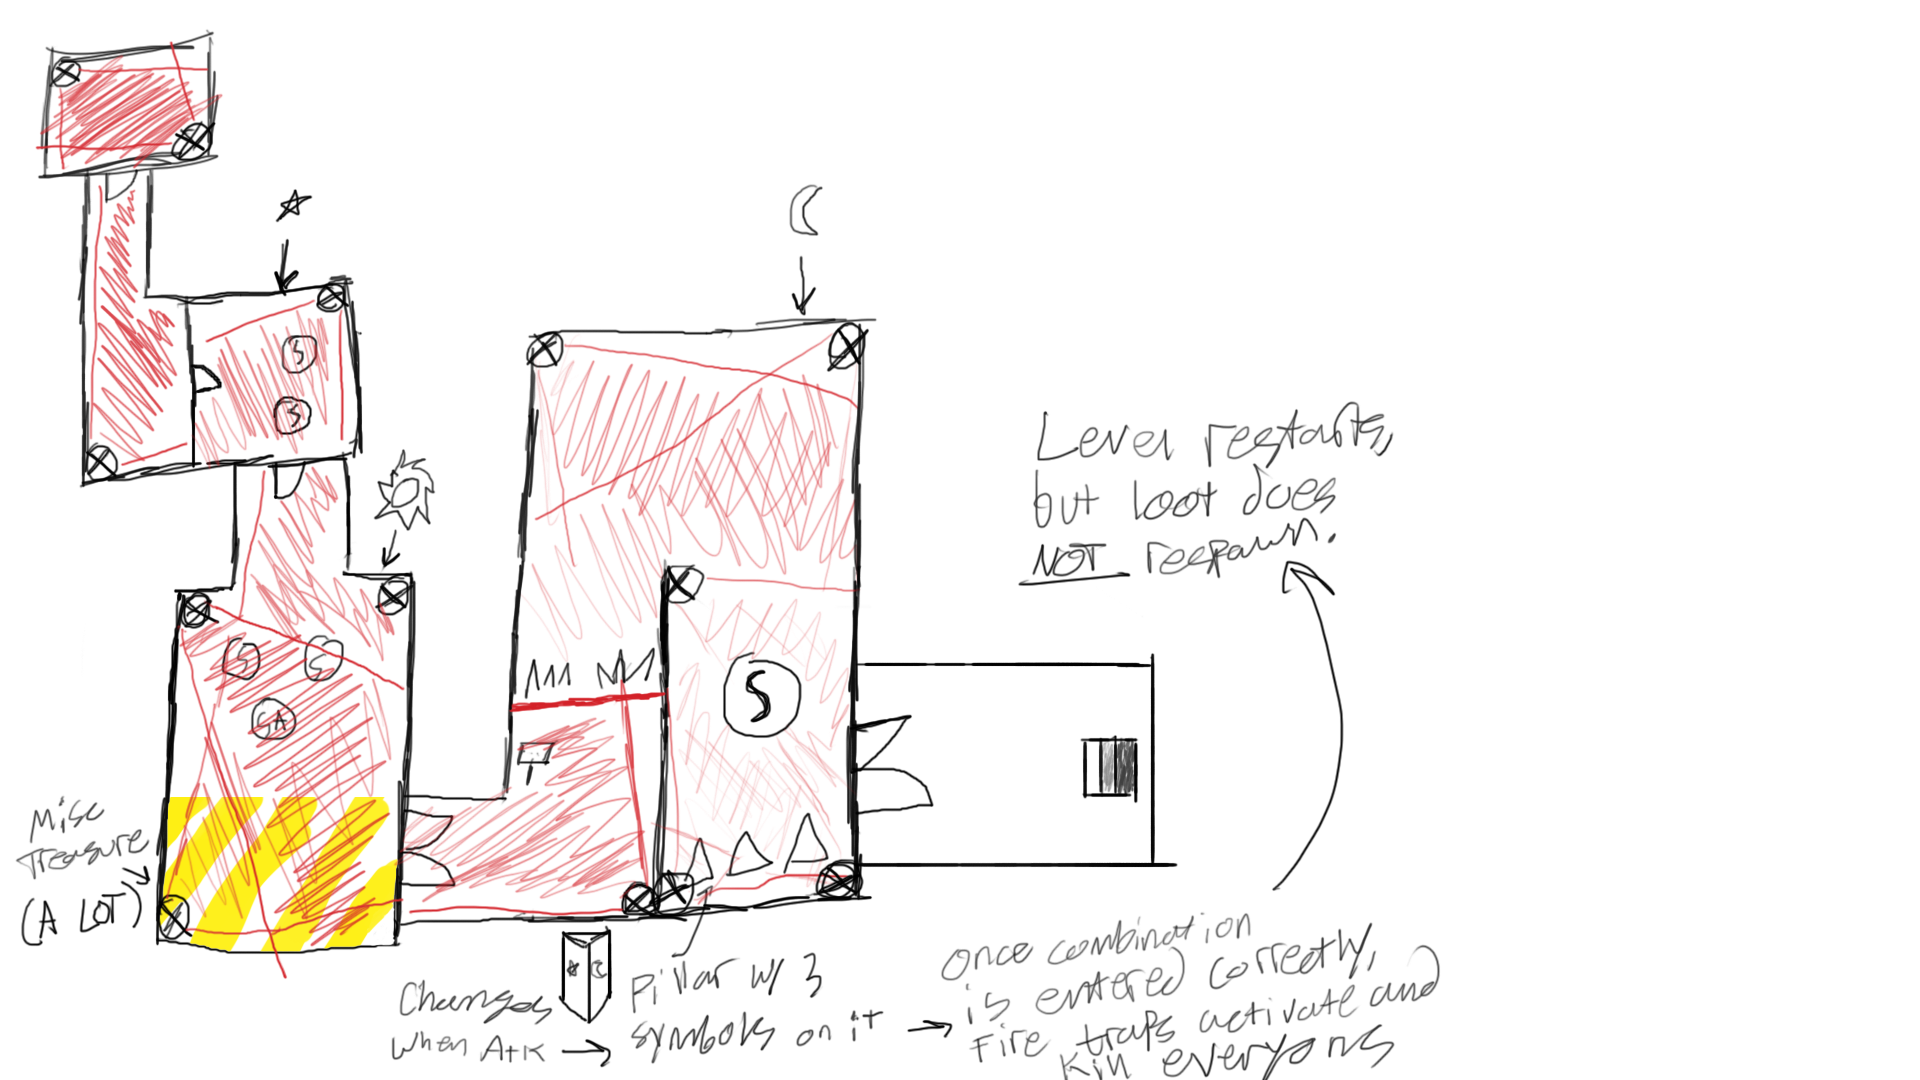 S
S
Level restarts,
but loot does
NOT respawn.
S
S
SA
S
Misc
Treasure
(A LOT)
Changes
when Atk
Pillar w/ 3
symbols on it
Once combination
is entered correctly,
Fire traps activate and
Kill everyone